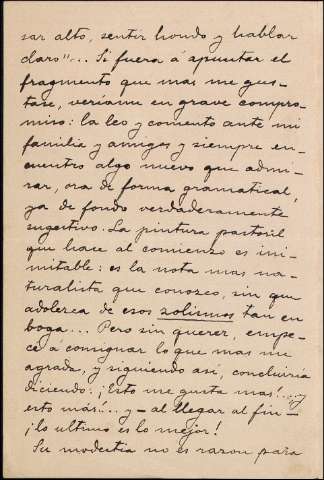 sar alto, sentir hondo y hablar
claro"... Si fuera á apuntar el
fragmento que mas me gus-
tase, veríame en grave compro-
miso: la leo y comento ante mi
familia y amigos y siempre en-
cuentro algo nuevo que admi-
rar, ora de forma gramatical,
ya de fondo verdaderamente
sugestivo. La pintura pastoril
que hace al comienzo es ini-
mitable: es la nota mas na-
turalista que conozco, sin que
adolezca de esos zolismos tan en
boga... Pero sin querer, empe-
cé á consignar lo que mas me
agrada, y siguiendo así, concluiría
diciendo: ¡Esto me gusta mas!... ¡y
esto más!... y - al llegar al fin -
¡lo ultimo es lo mejor!
Su modestia no es razon para